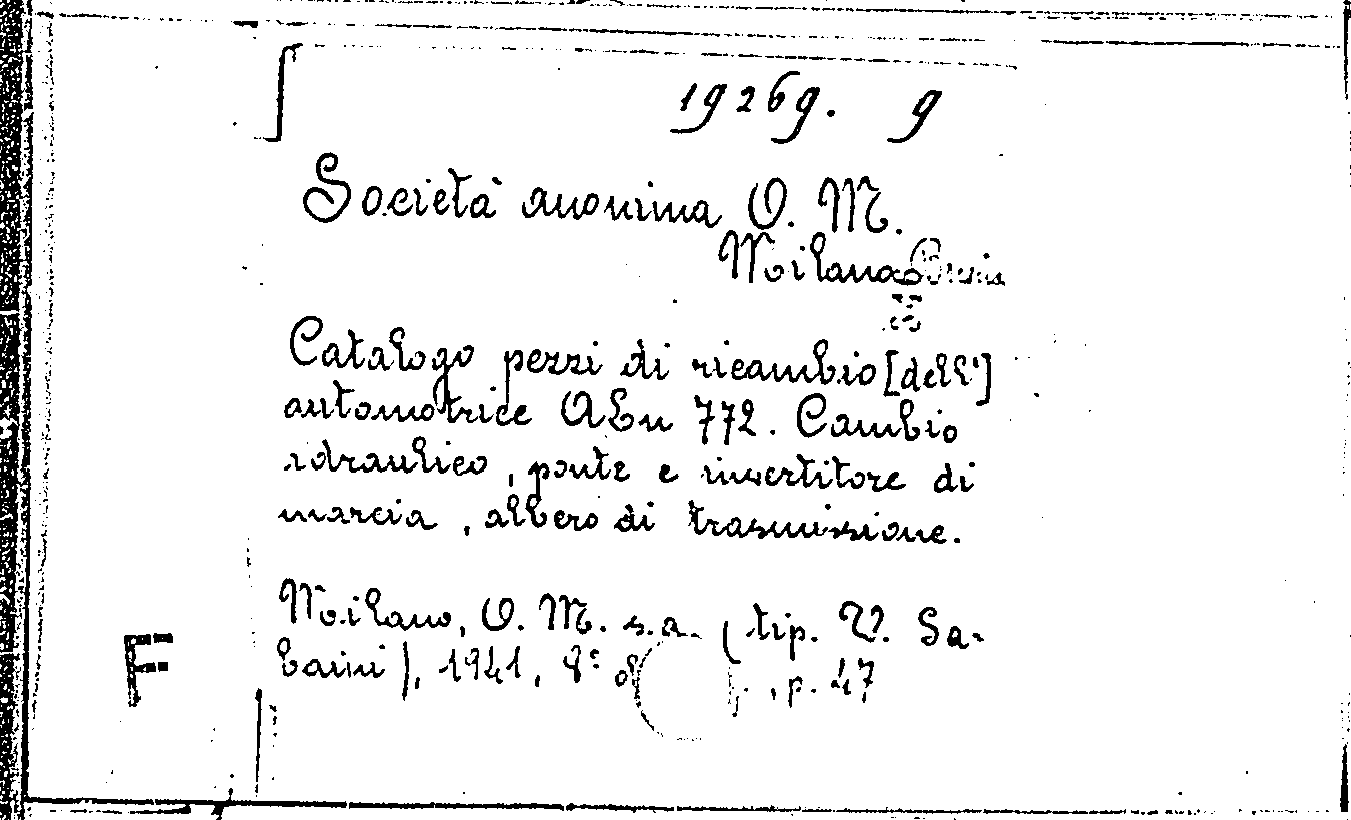 19269. 9
Società anonima O. M.
Milano
Catalogo pezzi di ricambio [dell']
automotrice ALn 772. Cambio
idraulico, ponte e invertitore di
marcia, albero di trasmissione.
Milano, O. M. s.a. (tip. U. Sa-
baini), 1941, 8°
p. 47
F